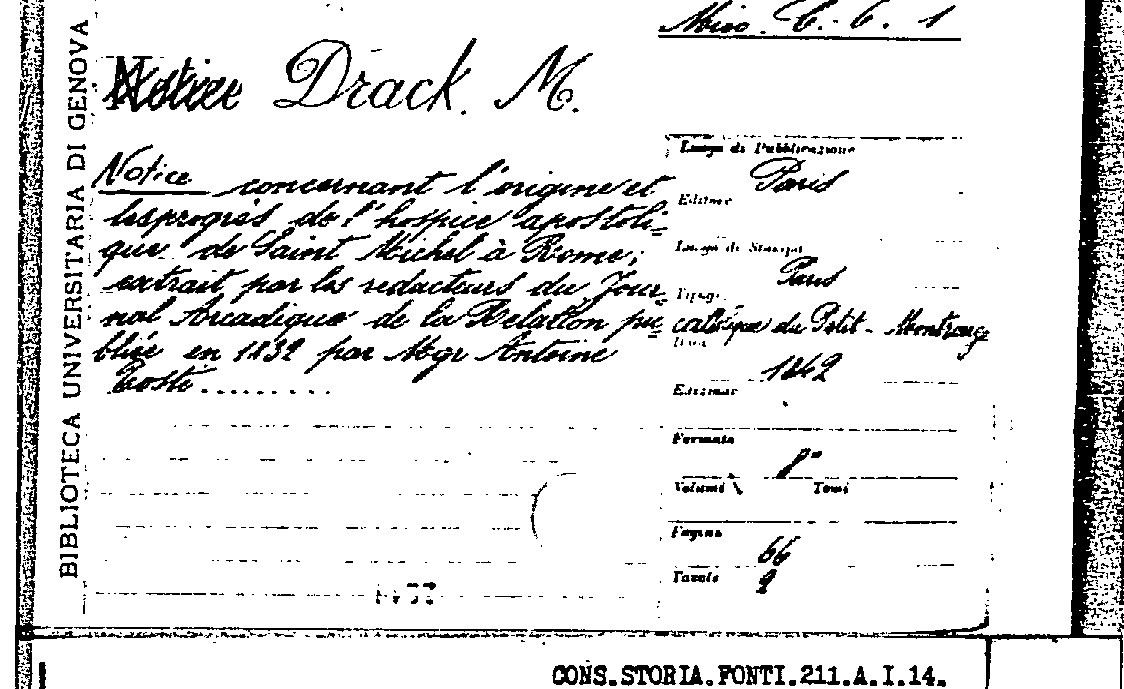 Misc. C. 6. 1
BIBLIOTECA UNIVERSITARIA DI GENOVA
Notice Drack. M.
Notice concernant l'origine et
les progrès de l'hospice apostoli-
que de Saint Michel à Rome;
extrait par les redacteurs du Jour-
nal Arcadique de la Relation pu-
bliée en 1832 par Mgr Antoine
Tosti.........
Luogo di Pubblicazione
Paris
Editore
Luogo di Stampa
Paris
Tipogr.
catholique du Petit-Montrouge
Data
1842
Esemplar
Formato
8°
Volumi Tomi
Pagine
66
Tavole
2
CONS.STORIA.FONTI.211.A.I.14.